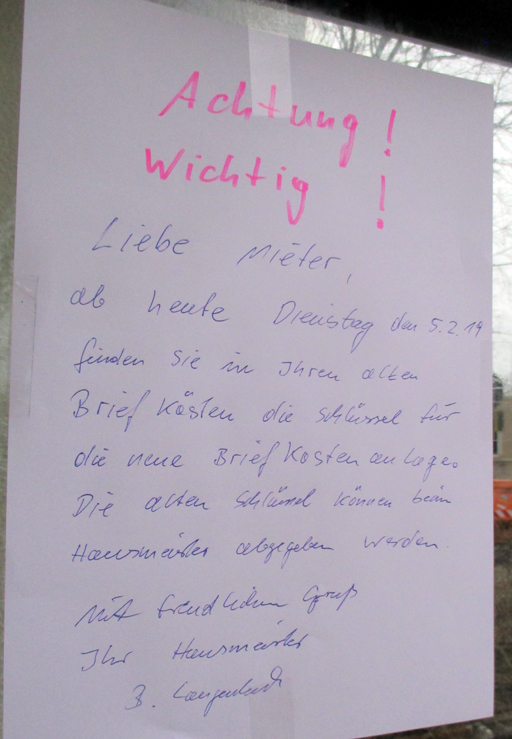 Achtung!
Wichtig!
Liebe Mieter,
ab heute Dienstag den 5.2.19
finden Sie in Ihren alten
Brief Kästen die Schlüssel für
die neue Brief Kasten anlage.
Die alten Schlüssel können beim
Hausmeister abgegeben werden.
Mit freudlichen Gruß
Ihr Hausmeister
B.